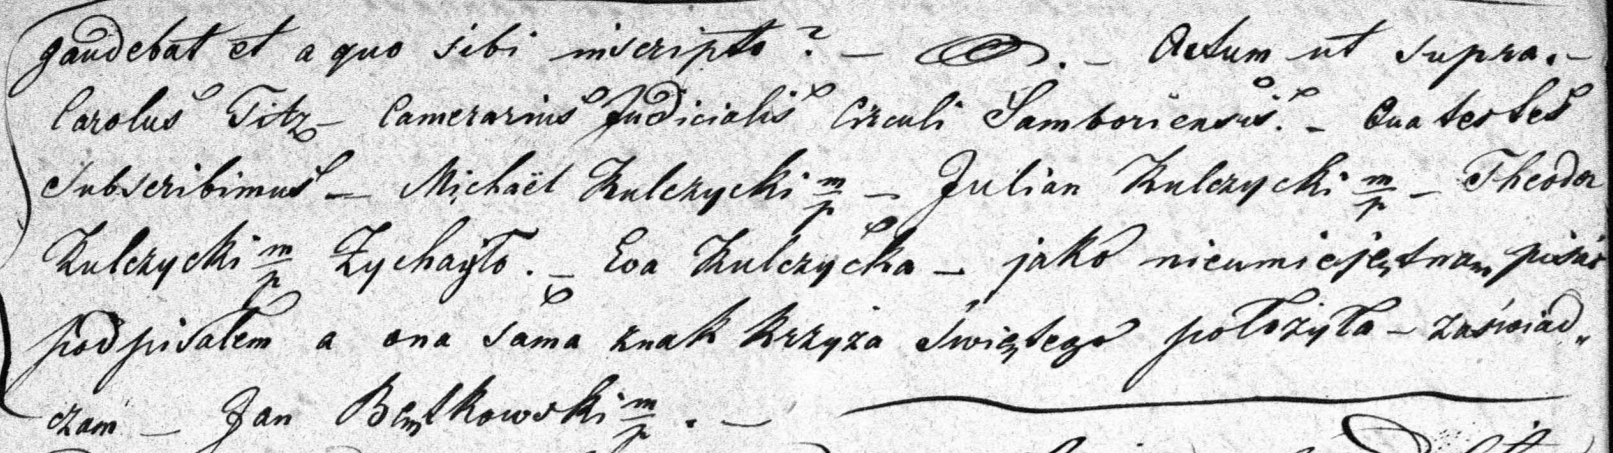 gaudebat et a quo sibi inscripto? — . — Actum ut supra. —
Carolus Titz — Camerarius Judicialis Circuli Samboriensis. — Qua testes
subscribimus — Michaël Kulczycki m/p — Julian Kulczycki m/p — Theodor
Kulczycki m/p Zychayło. — Eva Kulczycka — jako nieumiejętną pisać
podpisałem a ona sama znak krzyża świętego położyła — zaświad„
czam — Jan Bętkowski m/p . —